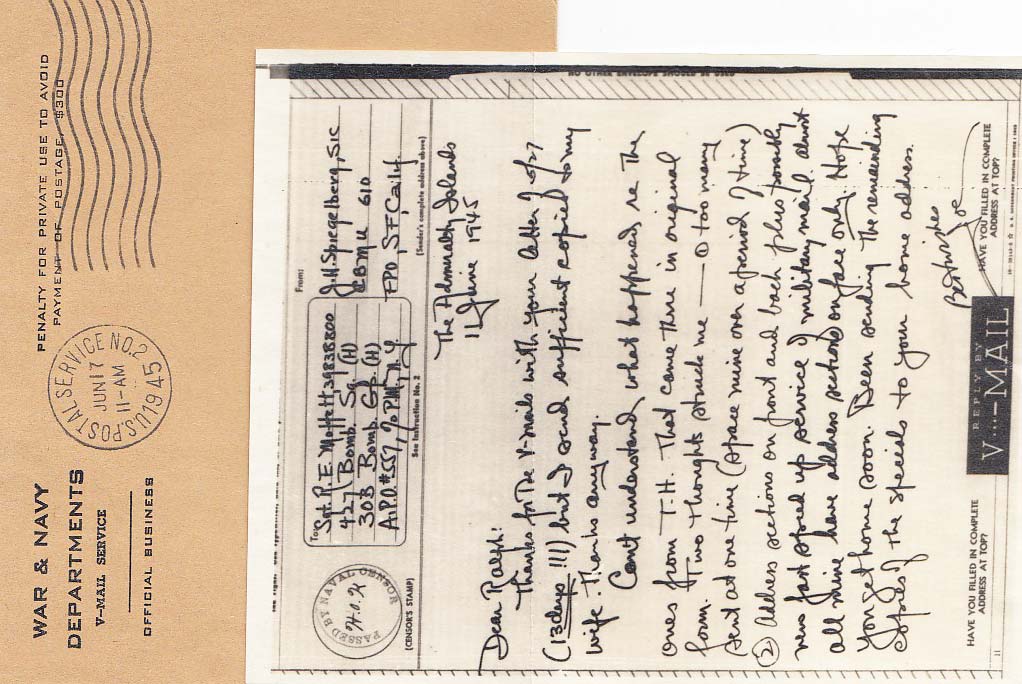 WAR & NAVY
DEPARTMENTS
V-MAIL SERVICE
OFFICIAL BUSINESS
U.S. POSTAL SERVICE NO. 2
JUN 17
11-AM
1945
PENALTY FOR PRIVATE USE TO AVOID
PAYMENT OF POSTAGE, $300
NO OTHER ENVELOPE SHOULD BE USED
PASSED BY NAVAL CENSOR
(CENSOR'S STAMP)
To:
Sgt. R.E. Moffett 39838800
427 Bomb. Sq (H)
303 Bomb. Gp (H)
A.P.O. #557, % P.M., N.Y
See Instruction No. 2
From:
J.H. Spiegelberg, S1C
CBMU 610
FPO, SF, Calif.
(Sender's complete address above)
The Admiralty Islands
11 June 1945
Dear Ralph:
Thanks for the V-mails with your letter of 5/27
(13 days !!!) but I send sufficient copied to my
wife. Thanks anyway.
Can't understand what happened re The
ones from T.H. That came thru in original
form. Two thoughts struck me — ① too many
sent at one time (space mine over a period of time)
② Address sections on front and back plus possibly
new fast speed up service of military mail about
all mine have address sections on face only. Hope
you get home soon. Been sending The remainding
of the specials to your home address.
Best wishes
Joe
HAVE YOU FILLED IN COMPLETE
ADDRESS AT TOP?
REPLY BY
V···—MAIL
HAVE YOU FILLED IN COMPLETE
ADDRESS AT TOP?